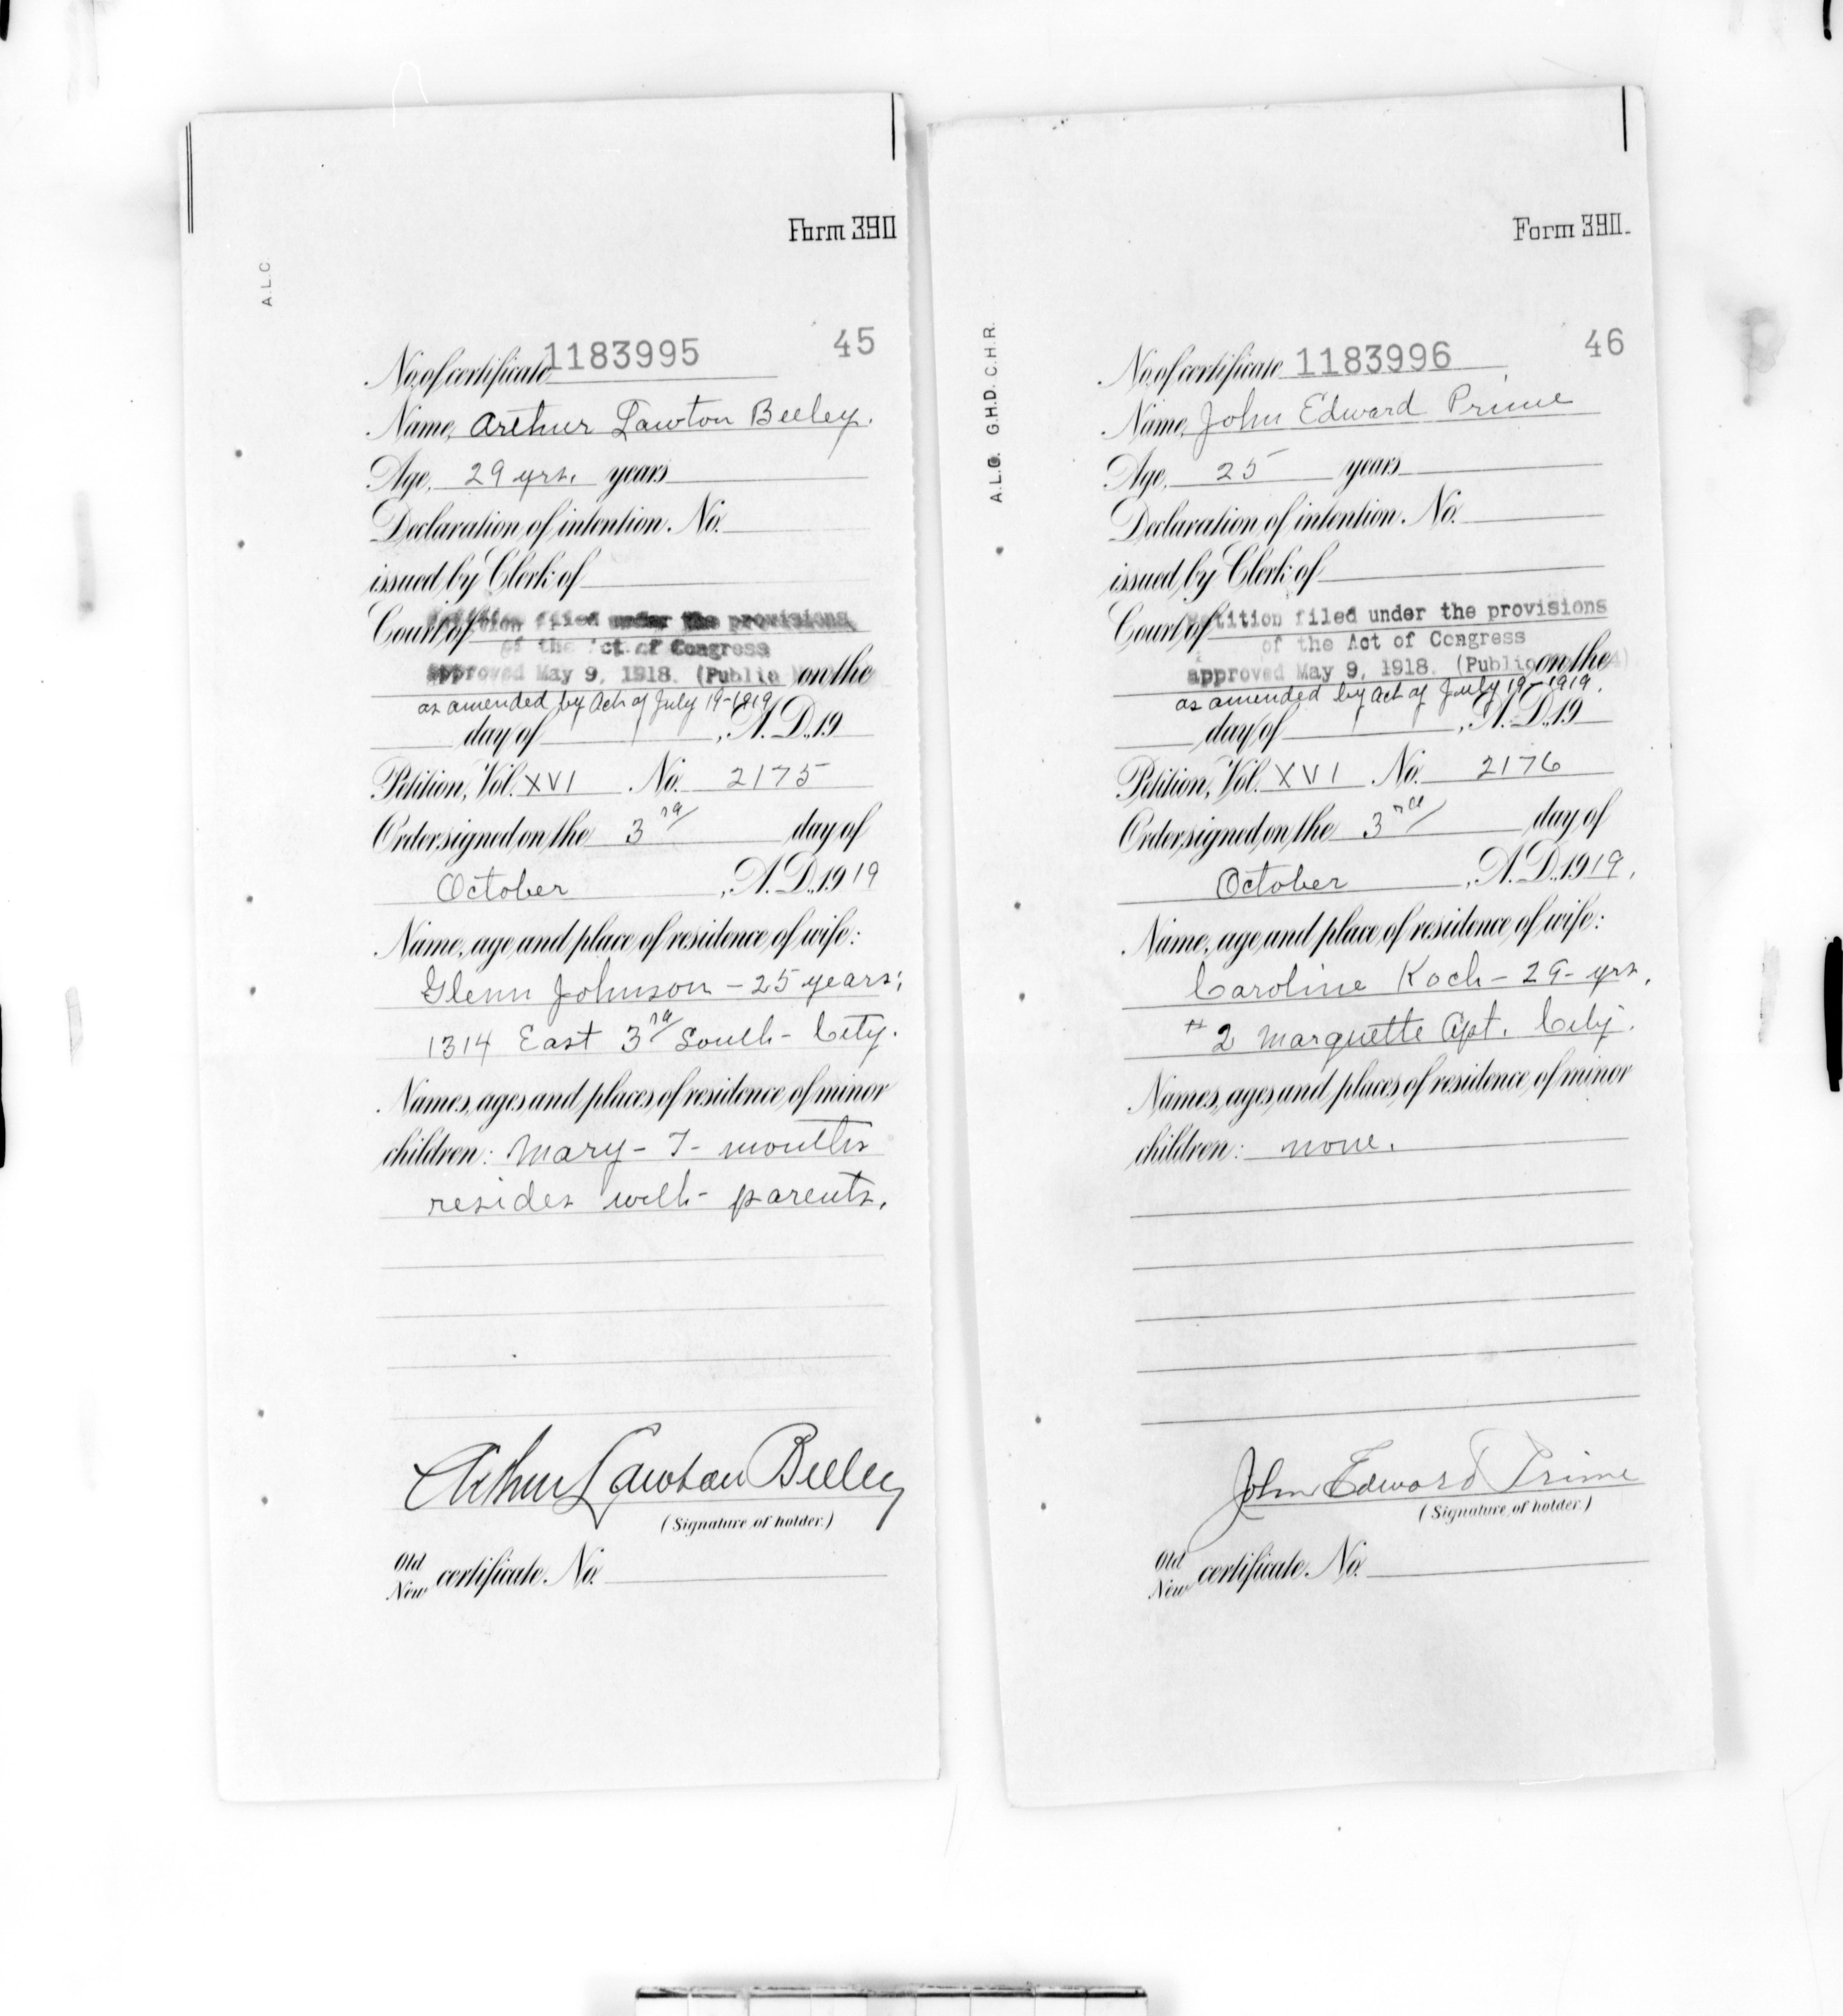 Form 390
A.L.C
45
No. of certificate 1183995
Name, Arthur Lawton Beeley.
Age, 29 yrs. years
Declaration of intention. No.
issued by Clerk of
Court of Petition filed under the provisions
of the Act of Congress
approved May 9, 1918. (Public on the
as amended by Act of July 19-1919
day of , A.D. 19
Petition, Vol. XVI No. 2175
Order signed on the 3rd day of
October , A.D. 1919
Name, age and place of residence of wife:
Glenn Johnson - 25 years;
1314 East 3rd South - City.
Names, ages and places of residence of minor
children: Mary - 7 - months
resides with - parents.
Arthur Lawton Beeley
(Signature of holder.)
Old
New certificate. No.
Form 390.
A.L.C. G.H.D. C.H.R.
46
No. of certificate 1183996
Name, John Edward Prime
Age, 25 years
Declaration of intention. No.
issued by Clerk of
Court of Petition filed under the provisions
of the Act of Congress
approved May 9, 1918. (Public on the
as amended by Act of July 19-1919.
day of , A.D. 19
Petition, Vol. XVI No. 2176
Order signed on the 3rd day of
October , A.D. 1919.
Name, age and place of residence of wife:
Caroline Koch - 29 - yrs.
#2 Marquette Apt. City.
Names, ages and places of residence of minor
children: none.
John Edward Prime
(Signature of holder.)
Old
New certificate. No.